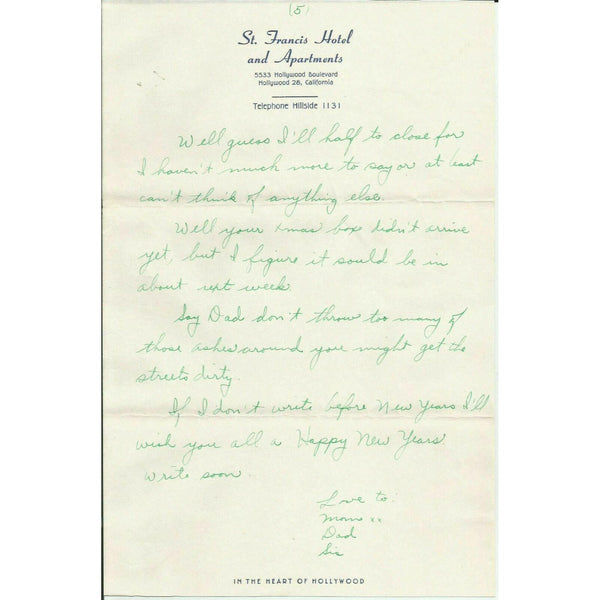 (5)
St. Francis Hotel
and Apartments
5533 Hollywood Boulevard
Hollywood 28, California
Telephone Hillside 1131
Well guess I'll half to close for
I haven't much more to say or at least
can't think of anything else.
Well your xmas box didn't arrive
yet, but I figure it sould be in
about next week.
Say Dad don't throw too many of
those ashes around you might get the
streets dirty.
If I don't write before New Years I'll
wish you all a Happy New Years.
Write soon.
Love to:
Mom xx
Dad
Sis
IN THE HEART OF HOLLYWOOD